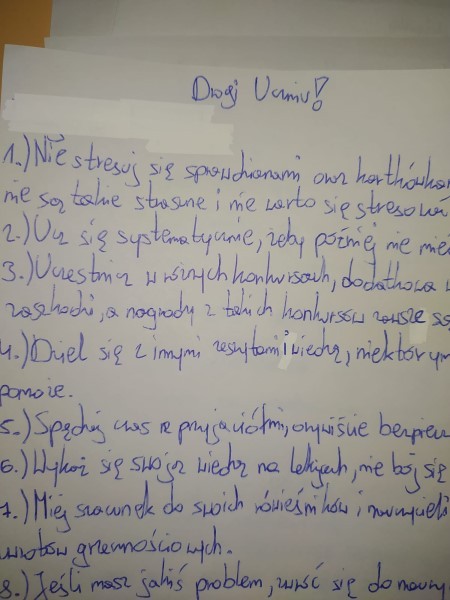 Drogi Uczniu!
1.) Nie stresuj się sprawdzianami oraz kartkówka
nie są takie straszne i nie warto się stresować
2.) Ucz się systematycznie, żeby później nie mie
3.) Uczestnicz w różnych konkursach, dodatkowa
zaszkodzi, a nagrody z takich konkursów zawsze są
4.) Dziel się z innymi zeszytami i wiedzą, niektórym
pomoże.
5.) Spędzaj czas z przyjaciółmi, oczywiście bezpiecz
6.) Wykaż się swoją wiedzą na lekcjach, nie bój się
7.) Miej szacunek do swoich rówieśników i nauczycieli
zwrotów grzecznościowych.
8.) Jeśli masz jakiś problem, zwróć się do nauczy